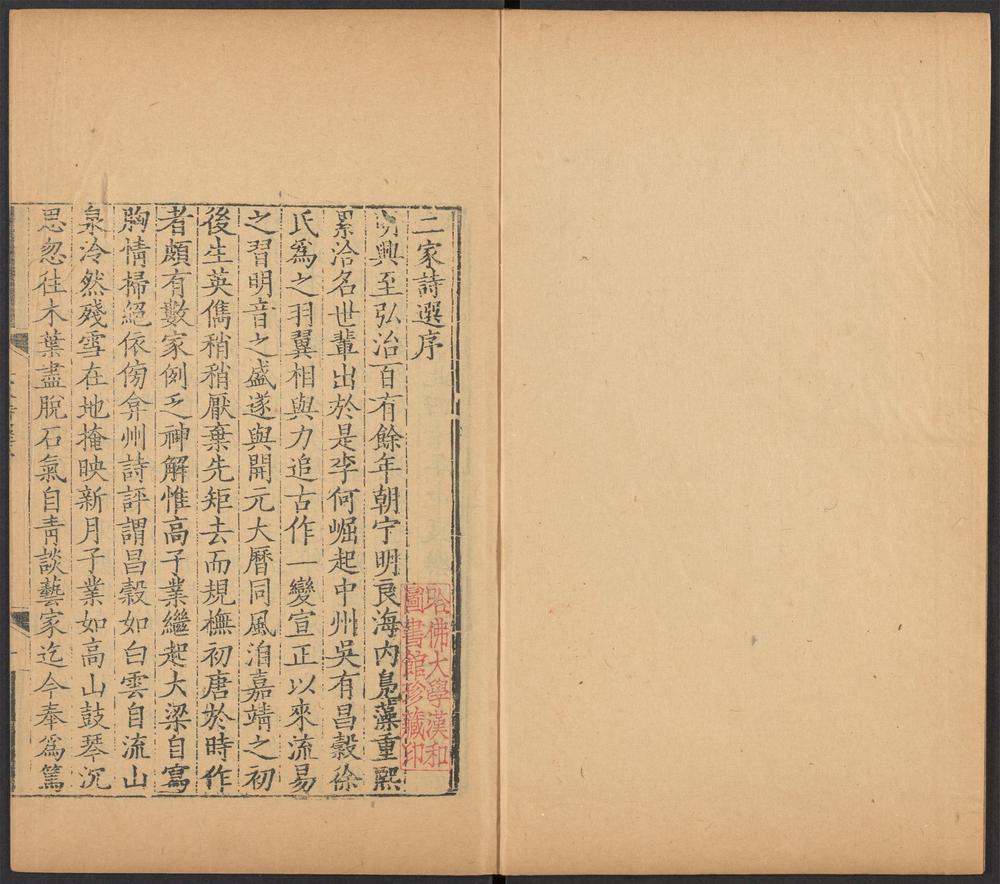 二家詩選序
明興至弘治百有餘年朝宁明良海内鳧藻重熙
累洽名世輩出於是李何崛起中州吳有昌穀徐
氏爲之羽翼相與力追古作一變宣正以來流易
之習明音之盛遂與開元大曆同風洎嘉靖之初
後生英儁稍稍厭棄先矩去而規橅初唐於時作
者頗有數家例乏神解惟高子業繼起大梁自寫
胸情掃絕依傍弇州詩評謂昌穀如白雲自流山
泉泠然殘雪在地掩映新月子業如高山鼓琴沉
思忽往木葉盡脫石氣自靑談藝家迄今奉爲篤
哈佛大學漢和
圖書館珍藏印